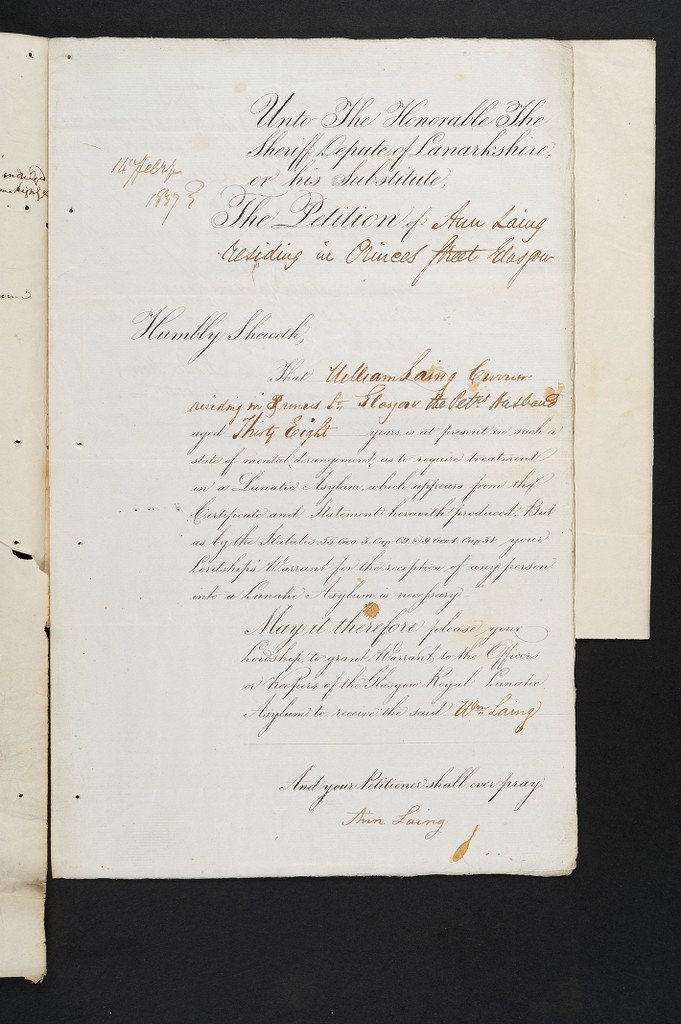 Unto The Honorable The
Sheriff Depute of Lanarkshire,
or his Substitute,
14th Feby
1837
The Petition of Ann Laing
residing in Princes Street Glasgow
Humbly Sheweth,
That William Laing Currier
residing in Princes St. Glasgow the Petrs. Husband
aged Thirty Eight years, is at present in such a
state of mental derangement, as to require treatment
in a Lunatic Asylum, which appears from the
Certificate and Statement herewith produced. But
as by the Statutes, 55 Geo 3. Cap. 69. & 9 Geo 4. Cap. 34 your
Lordships Warrant for the reception of any person
into a Lunatic Asylum is necessary
May it therefore please your
Lordship, to grant Warrant, to the Officers
or Keepers of the Glasgow Royal Lunatic
Asylum to receive the said Wm. Laing
And your Petitioner shall ever pray
Ann Laing